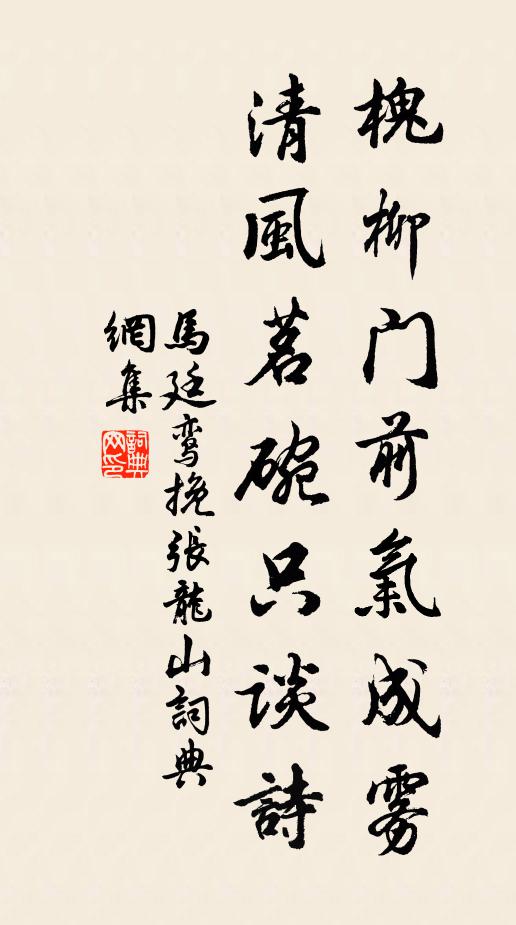 槐柳門前氣成雾
清風茗碗只談詩
馬廷鸾挽張龍山詞典
網集
詞典
网印